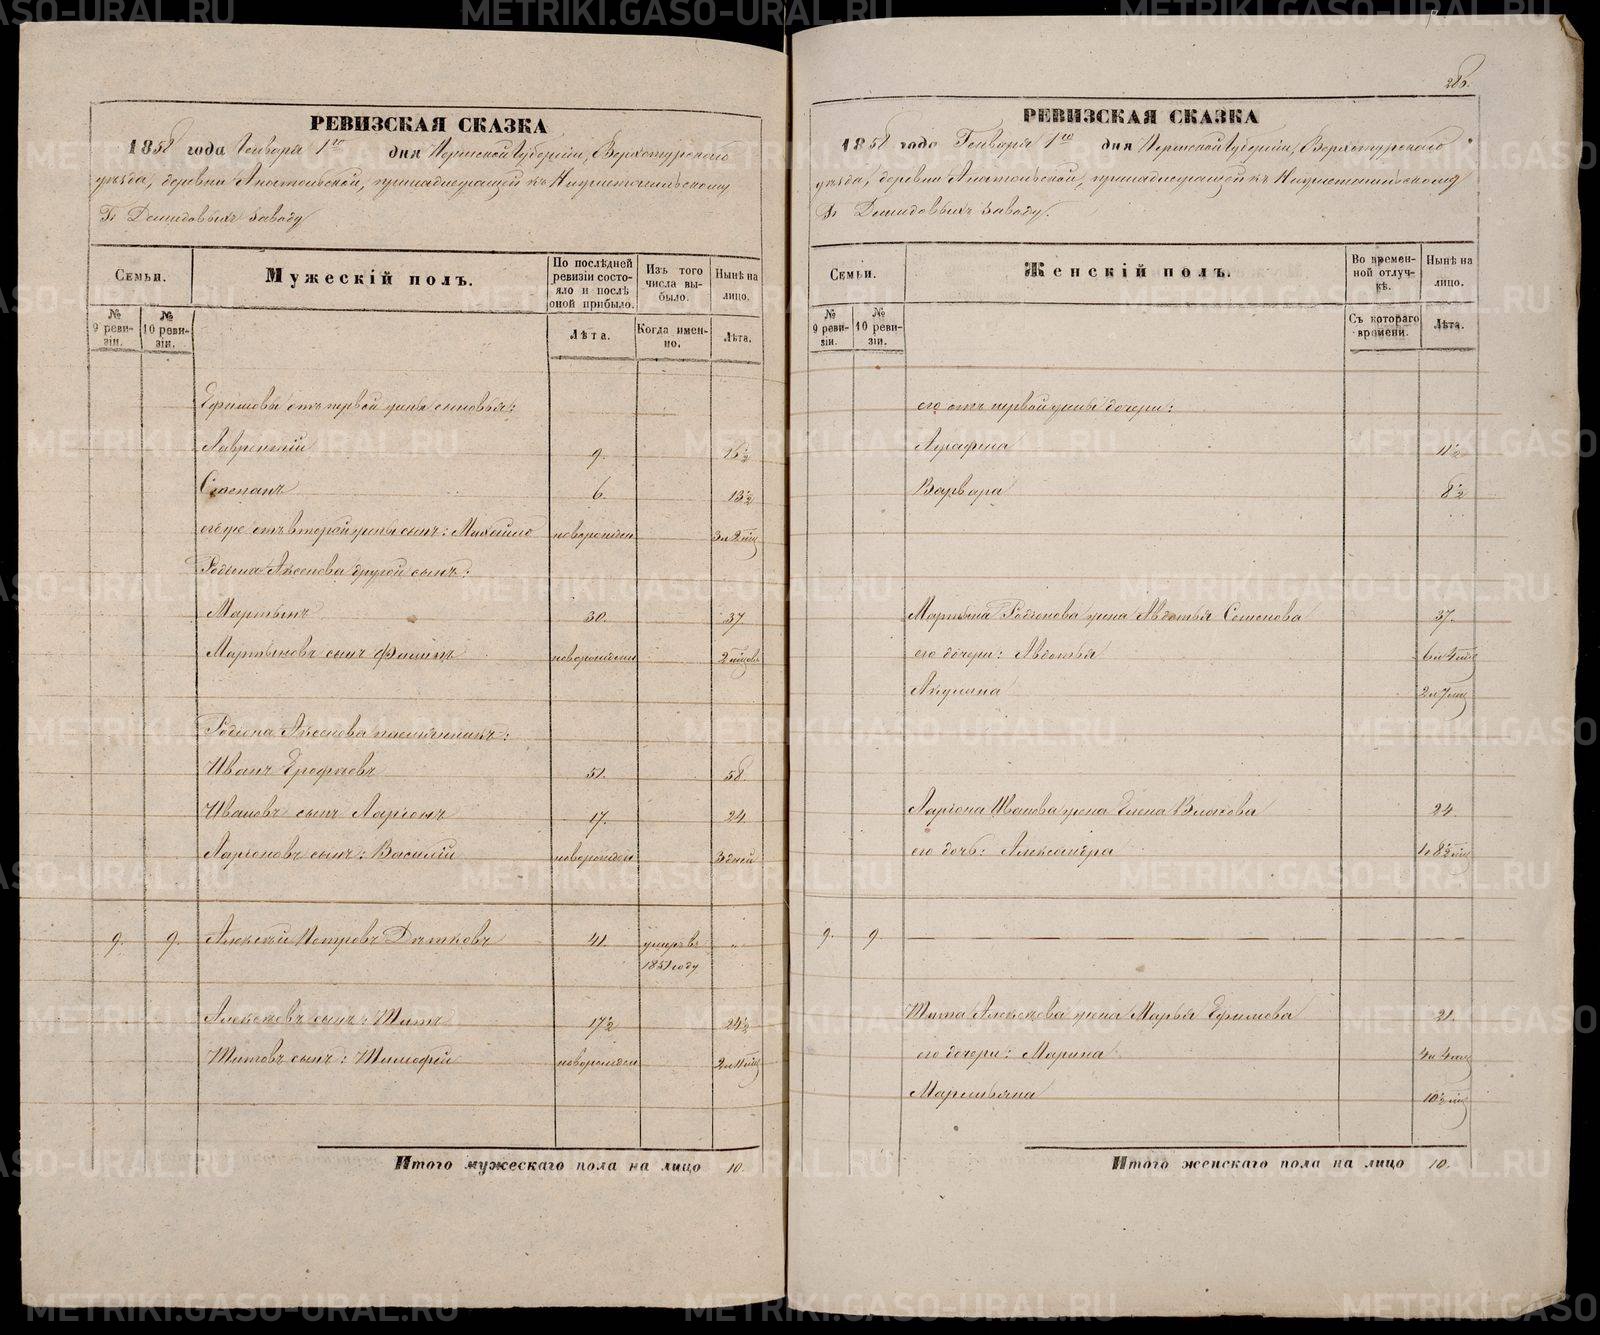 РЕВИЗСКАЯ СКАЗКА
1858 года Генваря 1го дня Пермской Губерніи, Верхотурскаго
уѣзда, деревни Анатольской, принадлежащей къ Нижнетагильскому
Гг. Демидовыхъ заводу
Семьи.
Мужескій полъ.
По послѣдней ревизіи состояло и послѣ оной прибыло.
Изъ того числа выбыло.
Нынѣ на лицо.
№ 9 ревизіи.
№ 10 ревизіи.
Лѣта.
Когда именно.
Лѣта.
Ефимовы отъ первой жены сыновья:
Лаврентій 9. 16½
Степанъ 6. 13½
его же отъ второй жены сынъ: Михайло новорожден 3 л 2 мѣс
Родіона Аксенова другой сынъ:
Мартынъ 30. 37.
Мартыновъ сынъ Филипъ новорожден 2 мѣсяц
Родіона Аксенова племянникъ:
Иванъ Ерофѣевъ 51. 58.
Ивановъ сынъ Ларіонъ 17. 24.
Ларіоновъ сынъ: Василій новорожден 3 дней
9. 9. Алексѣй Петровъ Дѣтковъ 41. умеръ въ 1851 году „
Алексѣевъ сынъ: Титъ 17½ 24½
Титовъ сынъ: Тимофей новорожден 2 л 11 мѣс
Итого мужескаго пола на лицо 10.
286.
РЕВИЗСКАЯ СКАЗКА
1858 года Генваря 1го дня Пермской Губерніи, Верхотурскаго
уѣзда, деревни Анатольской, принадлежащей къ Нижнетагильскому
Гг. Демидовыхъ заводу.
Семьи.
Женскій полъ.
Во временной отлучкѣ.
Нынѣ на лицо.
№ 9 ревизіи.
№ 10 ревизіи.
Съ котораго времени.
Лѣта.
его отъ первой жены дочери:
Аграфена 11½
Варвара 8½
Мартына Родіонова жена Авдотья Семенова 37.
его дочери: Авдотья 6 л 4 мѣс
Акулина 2 л 7 мѣс
Ларіона Иванова жена Елена Власова 24
его дочь: Александра 1 л 8½ мѣс
9. 9.
Тита Алексѣева жена Марья Ефимова 21.
его дочери: Марина 4 л 4 мѣс
Маремьяна 10½ мѣс
Итого женскаго пола на лицо 10.
METRIKI.GASO-URAL.RU